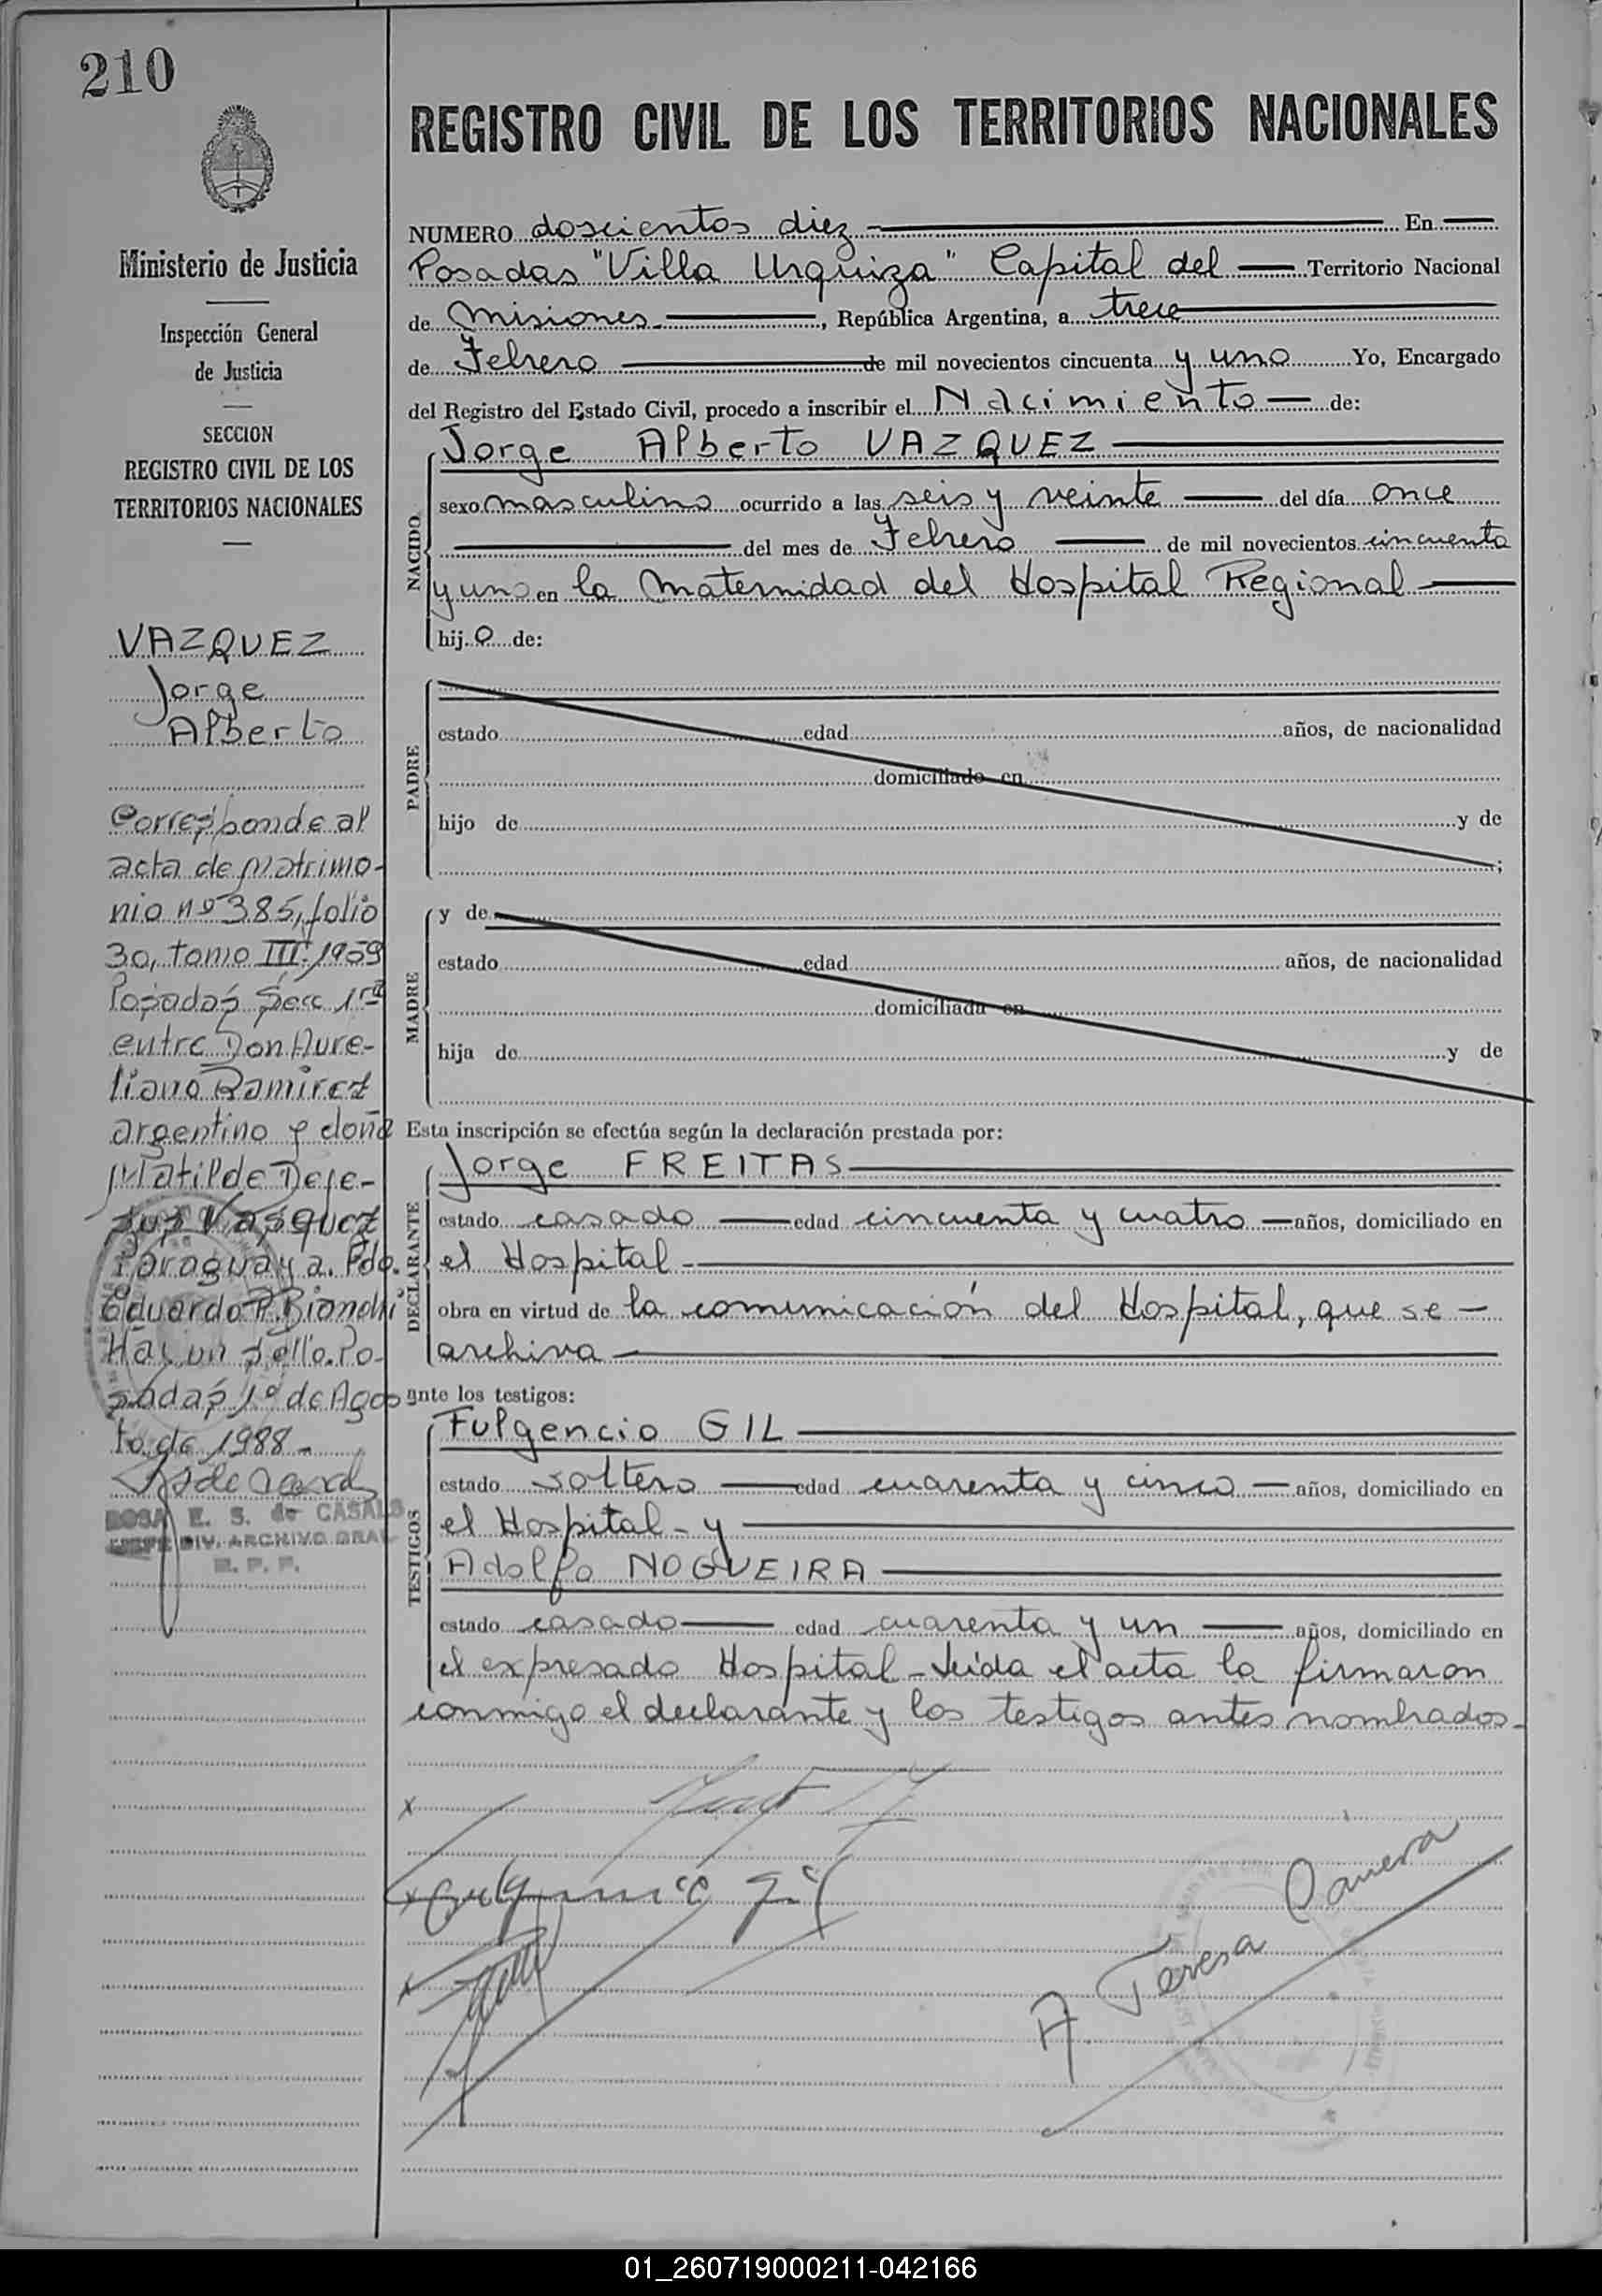 210
Ministerio de Justicia
Inspección General
de Justicia
SECCION
REGISTRO CIVIL DE LOS
TERRITORIOS NACIONALES
VAZQUEZ
Jorge
Alberto
Corresponde al
acta de matrimo-
nio nº 385, folio
30, tomo III. 1959
Posadas Secc 1ra
entre Don Aure-
liano Ramirez
argentino y doña
Matilde Deje-
sus Vasquez
Paraguaya. Fdo.
Eduardo P. Bianchi
Hay un sello. Po-
sadas 1º de Agos
to de 1988.-
ROSA E. S. de CASALS
JEFE DIV. ARCHIVO GRAL
R. P. P.
REGISTRO CIVIL DE LOS TERRITORIOS NACIONALES
NUMERO doscientos diez En
Posadas "Villa Urquiza" Capital del Territorio Nacional
de Misiones, República Argentina, a trece
de Febrero de mil novecientos cincuenta y uno Yo, Encargado
del Registro del Estado Civil, procedo a inscribir el Nacimiento de:
NACIDO
Jorge Alberto VAZQUEZ
sexo masculino ocurrido a las seis y veinte del día once
del mes de Febrero de mil novecientos cincuenta
y uno en la Maternidad del Hospital Regional
hijo de:
PADRE
estado edad años, de nacionalidad
domiciliado en
hijo de y de
;
MADRE
y de
estado edad años, de nacionalidad
domiciliada en
hija de y de
Esta inscripción se efectúa según la declaración prestada por:
DECLARANTE
Jorge FREITAS
estado casado edad cincuenta y cuatro años, domiciliado en
el Hospital
obra en virtud de la comunicación del Hospital, que se
archiva
ante los testigos:
TESTIGOS
Fulgencio GIL
estado soltero edad cuarenta y cinco años, domiciliado en
el Hospital - y
Adolfo NOGUEIRA
estado casado edad cuarenta y un años, domiciliado en
el expresado Hospital - Leída el acta la firmaron
conmigo el declarante y los testigos antes nombrados.
x
x Fulgencio Gil
x
A. Teresa
01_260719000211-042166